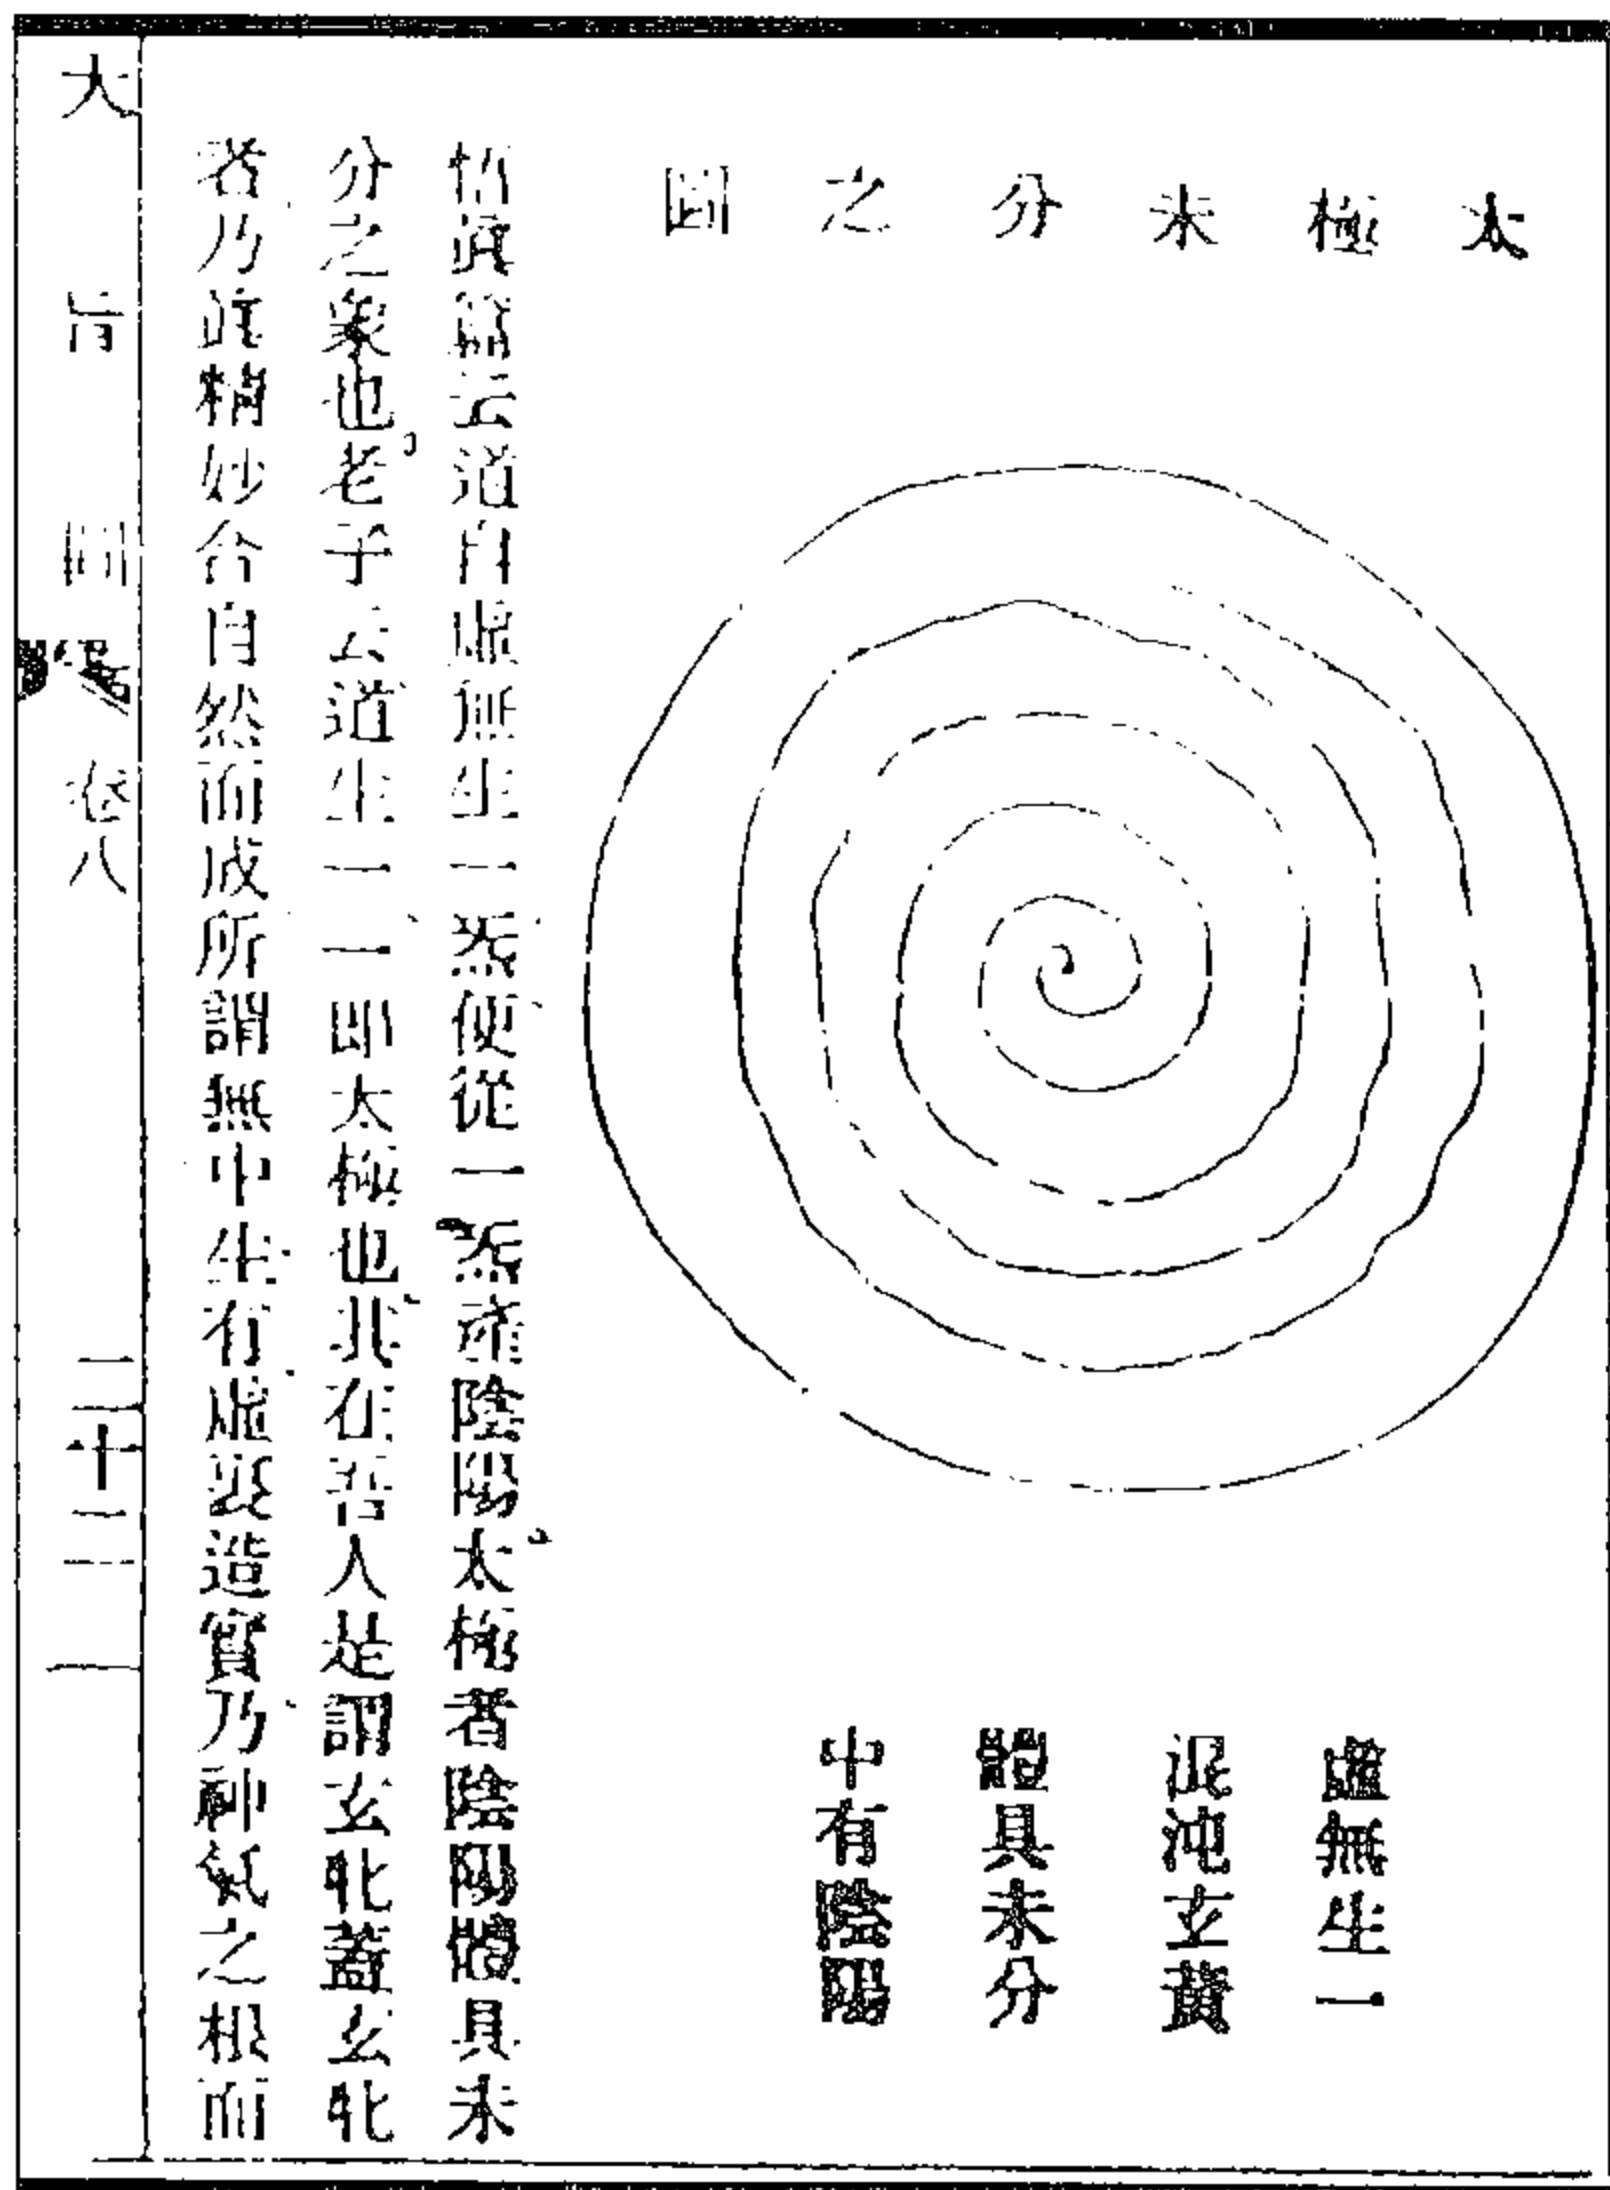 太極未分之圖
虛無生一
混沌玄黃
體具未分
中有陰陽
悟眞篇云道自虛無生一炁便從一炁產陰陽太極者陰陽體具未
分之象也老子云道生一一即太極也其在吾人是謂玄牝蓋玄牝
者乃眞精妙合自然而成所謂無中生有虛裏造實乃神氣之根而
大旨圖 卷八 二十三